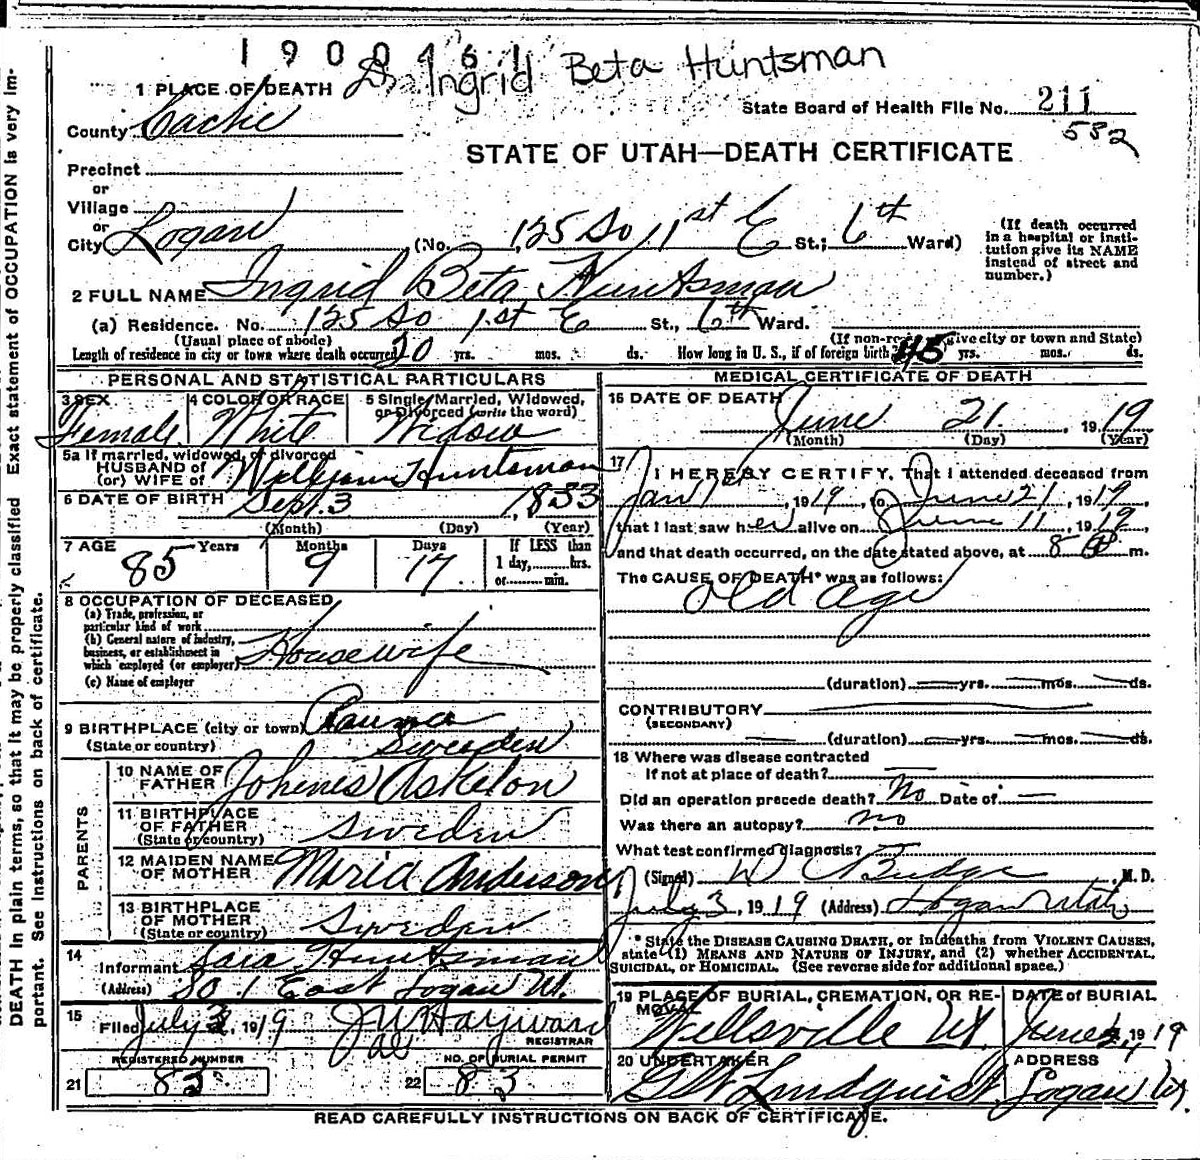 1900461
Ingrid Beta Huntsman
1 PLACE OF DEATH
State Board of Health File No. 211
582
County Cache
STATE OF UTAH—DEATH CERTIFICATE
Precinct
or
Village
or
City Logan (No. 125 So 1st E St.; 6th Ward)
(If death occurred in a hospital or institution give its NAME instead of street and number.)
2 FULL NAME Ingrid Beta Huntsman
(a) Residence. No. 125 So 1st E St., 6th Ward.
(Usual place of abode) (If non-resident give city or town and State)
Length of residence in city or town where death occurred 20 yrs. mos. ds. How long in U. S., if of foreign birth? 45 yrs. mos. ds.
PERSONAL AND STATISTICAL PARTICULARS
3 SEX 4 COLOR OR RACE 5 Single, Married, Widowed, or Divorced (write the word)
Female White Widow
5a If married, widowed, or divorced
HUSBAND of
(or) WIFE of William Huntsman
6 DATE OF BIRTH Sept. 3, 1833
(Month) (Day) (Year)
7 AGE Years Months Days If LESS than
85 9 17 1 day, hrs.
or min.
8 OCCUPATION OF DECEASED
(a) Trade, profession, or
particular kind of work
(b) General nature of industry,
business, or establishment in
which employed (or employer) Housewife
(c) Name of employer
9 BIRTHPLACE (city or town)
(State or country) Sweden
PARENTS
10 NAME OF
FATHER Johenis Askelon
11 BIRTHPLACE
OF FATHER
(State or country) Sweden
12 MAIDEN NAME
OF MOTHER Maria Anderson
13 BIRTHPLACE
OF MOTHER
(State or country) Sweden
14
Informant Huntsman
(Address) So 1 East Logan Ut.
15
Filed July 3, 1919 J W Hayward
REGISTRAR
REGISTERED NUMBER NO. OF BURIAL PERMIT
21 83 22 83
MEDICAL CERTIFICATE OF DEATH
16 DATE OF DEATH June 21, 1919
(Month) (Day) (Year)
17
I HEREBY CERTIFY, That I attended deceased from
Jan 1st, 1919, to June 21, 1919
that I last saw her alive on June 11, 1919,
and that death occurred, on the date stated above, at 8 m.
The CAUSE OF DEATH* was as follows:
Old Age
(duration) yrs. mos. ds.
CONTRIBUTORY
(SECONDARY)
(duration) yrs. mos. ds.
18 Where was disease contracted
If not at place of death?
Did an operation precede death? No Date of
Was there an autopsy? no
What test confirmed diagnosis?
(Signed) W Budge, M. D.
July 3, 1919 (Address) Logan Utah
* State the DISEASE CAUSING DEATH, or in deaths from VIOLENT CAUSES,
state (1) MEANS AND NATURE OF INJURY, and (2) whether ACCIDENTAL,
SUICIDAL, or HOMICIDAL. (See reverse side for additional space.)
19 PLACE OF BURIAL, CREMATION, OR REMOVAL DATE of BURIAL
Wellsville Ut. June 1919
20 UNDERTAKER ADDRESS
G W Lindquist Logan Ut.
READ CAREFULLY INSTRUCTIONS ON BACK OF CERTIFICATE.
DEATH in plain terms, so that it may be properly classified Exact statement of OCCUPATION is very im-
portant. See instructions on back of certificate.